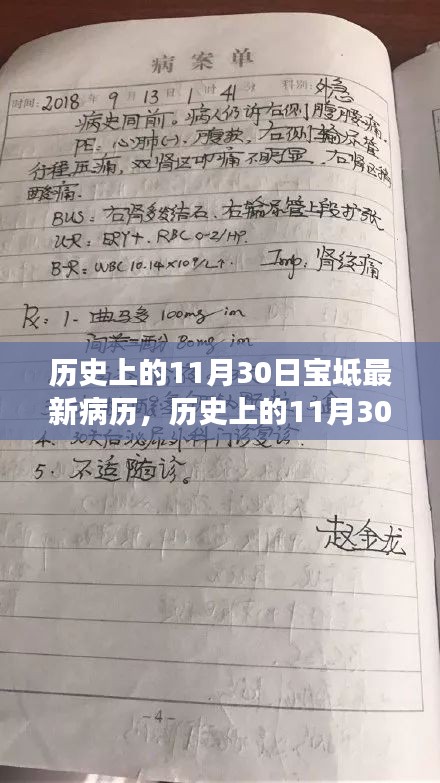 病案单
时间:2018年9月13日1时41分 科别:外急
病史同前。病人仍诉右侧腹腰痛。
PE:心肺(-),腹软,右侧输尿管
行程压痛,双肾区叩痛不明显,右肾区
酸痛。
BUS:右肾多发结石、右输尿管上段扩张
UR:ERY+. RBC 0-2/HP.
B-R:WBC 10.14×10⁹/L↑. Imp:肾绞痛
Rx:1.曲马多 100mg im
间苯三酚 80mg im
历史上的11月30日宝坻最
新病历,历史上的11月30
5.不适随诊。
赵金龙
-4-